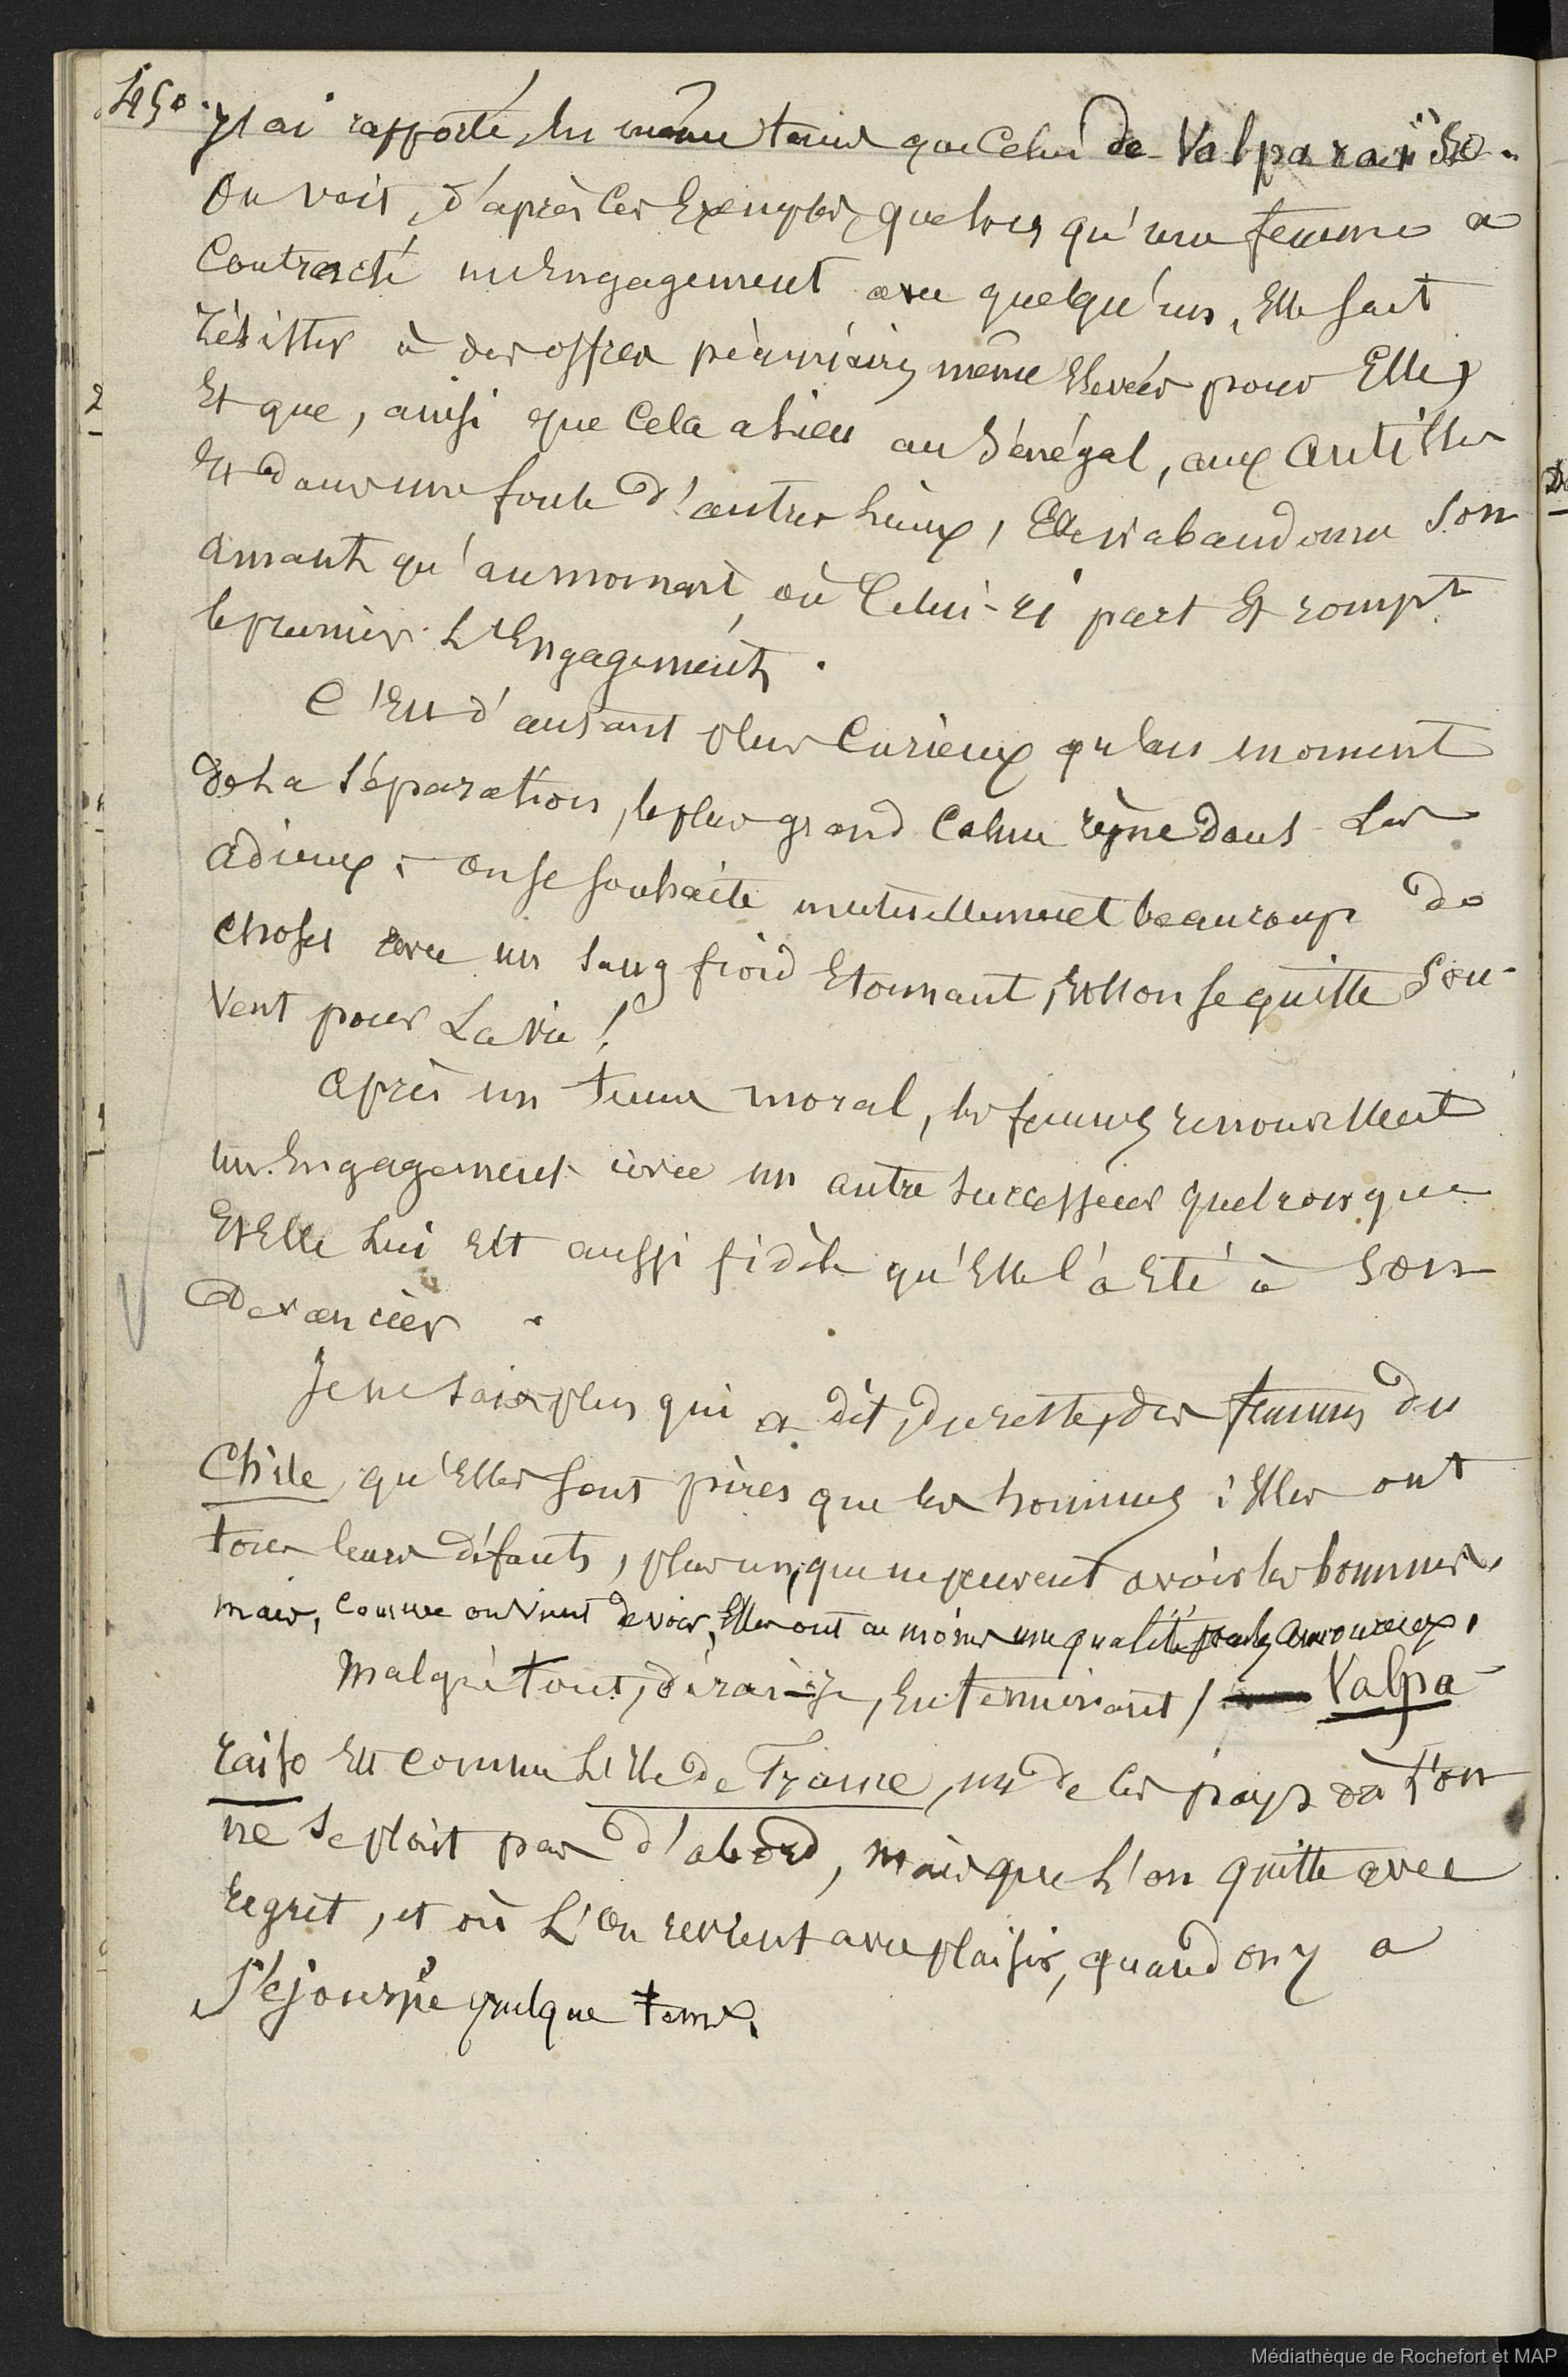 450.
j'ai rapporté, du même tems que celui de Valparaïso.
On voit, d'après ces Exemples, que lors qu'une femme a
Contracté un Engagement avec quelqu'un, Elle sait
résister à des offres pécuniaires même Elevées pour Elle,
Et que, ainsi que Cela a lieu au Sénégal, aux Antilles
Et dans une foule d'autres lieux, Elle n'abandonne son
amant qu'au moment où Celui-ci part Et rompt
le premier L'Engagement.
C'Est d'autant plus Curieux qu'au moment
de La Séparation, le plus grand Calme règne dans Les
adieux : on se souhaite mutuellement beaucoup de
choses avec un sang froid Etonnant, Et l'on se quitte sou-
vent pour La vie !
Après un tems moral, les femmes renouvellent
un Engagement avec un autre successeur quelconque
Et Elle Lui Est aussi fidèle qu'Elle l'a Eté à son
Devancier.
Je ne sais plus qui a dit, du reste, des femmes du
Chile, qu'Elles sont pires que les hommes : Elles ont
tous leurs défauts, plus un, que ne peuvent avoir les hommes,
mais, comme on vient de voir, Elles ont au moins une qualité pour les amoureux.
Malgré tout, dirai-je, En terminant, Valpa-
raiso Est comme L'Ille de France, un de ces pays où l'on
ne se plait pas d'abord, mais que L'on quitte avec
regret, et où L'on revient avec plaisir, quand on y a
Séjourné quelque tems.
Médiathèque de Rochefort et MAP